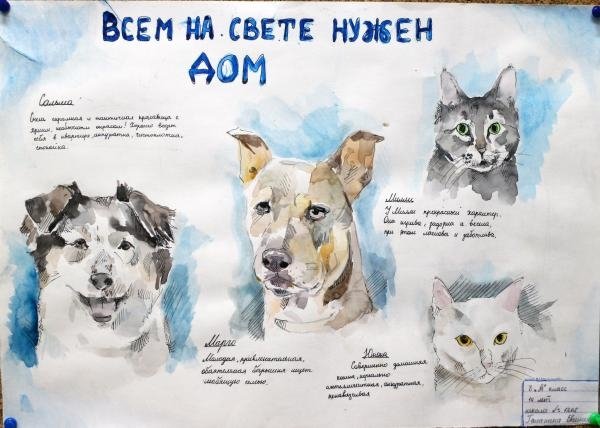 ВСЕМ НА СВЕТЕ НУЖЕН
ДОМ
Сальма
Очень скромная и тактичная красавица с
ярким, необычным окрасом! Хорошо ведет
себя в квартире, аккуратна, чистоплотна,
спокойна.
Милли
У Милли прекрасный характер.
Она игрива, задорна и весела,
при этом ласкова и заботлива.
Марго
Молодая, привлекательная,
обаятельная барышня ищет
любящую семью.
Юнона
Совершенно домашняя
кошка, идеально
интеллигентная, аккуратная,
ненавязчивая
8 „А" класс
14 лет
школа №